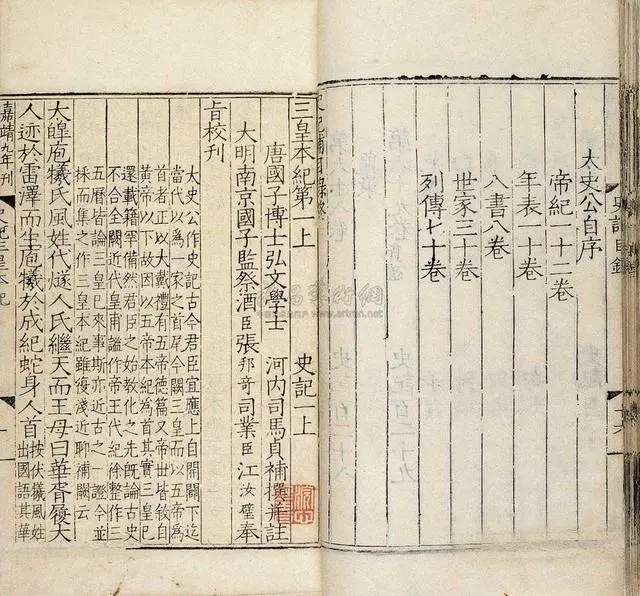 太史公自序
帝紀一十二卷
年表一十卷
八書八卷
世家三十卷
列傳七十卷
史記目錄
三皇本紀第一上 史記一上
唐國子博士弘文學士 河内司馬貞補撰并註
大明南京國子監祭酒臣張邦奇司業臣江汝璧奉
旨校刊
太史公作史記古今君臣宜應上自開闢下迄
當代以爲一家之首尾今闕三皇而以五帝爲
首者正以大戴禮有五帝德篇又帝世皆敘自
黄帝以下故因以五帝本紀爲首其實三皇已
還載籍罕備然君臣之始教化之先旣論古史
不合全闕近代皇甫謐作帝王代紀徐整作三
五曆皆論三皇已來事斯亦近古之一證今並
採而集之作三皇本紀雖復淺近聊補闕云
太皥庖犧氏風姓代燧人氏繼天而王母曰華胥履大
人迹於雷澤而生庖犧於成紀蛇身人首
按伏犧風姓
出國語其華
嘉靖九年刊
史記三皇本紀